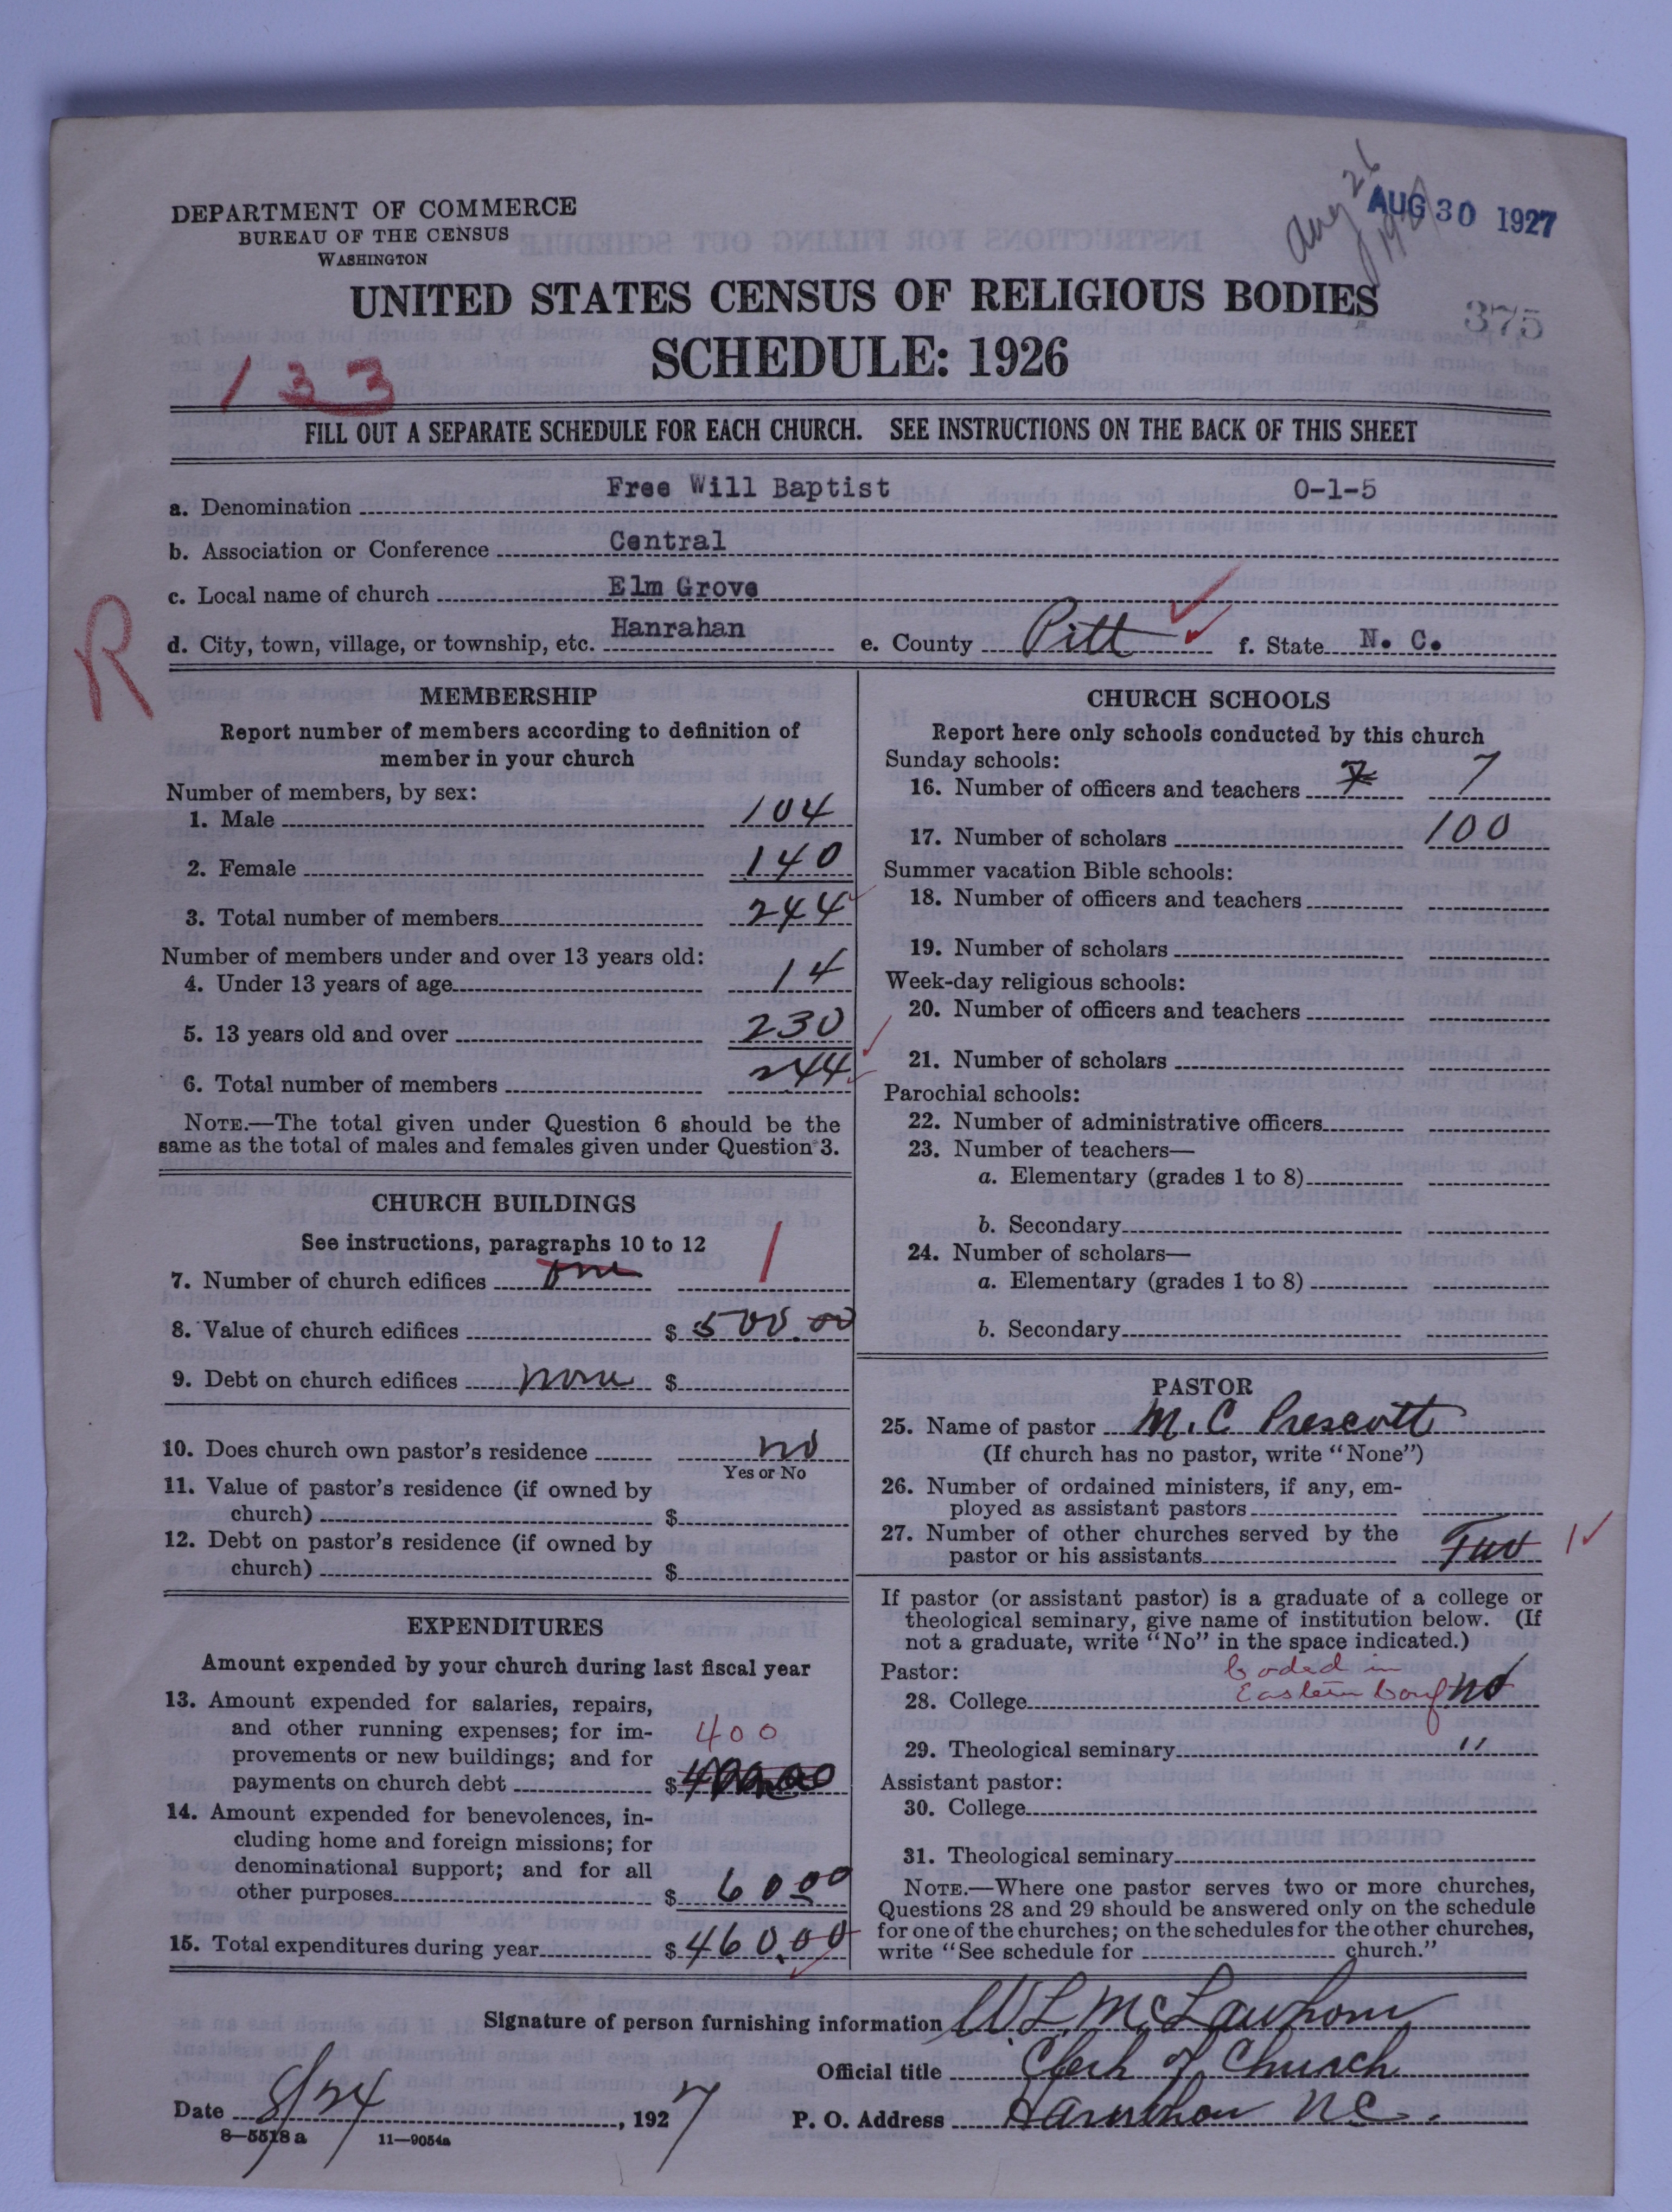 DEPARTMENT OF COMMERCE
BUREAU OF THE CENSUS
WASHINGTON
Aug 26
1927
AUG 30 1927
UNITED STATES CENSUS OF RELIGIOUS BODIES
375
SCHEDULE: 1926
133
FILL OUT A SEPARATE SCHEDULE FOR EACH CHURCH. SEE INSTRUCTIONS ON THE BACK OF THIS SHEET
a. Denomination Free Will Baptist 0-1-5
b. Association or Conference Central
c. Local name of church Elm Grove
d. City, town, village, or township, etc. Hanrahan e. County Pitt f. State N. C.
R
MEMBERSHIP
Report number of members according to definition of
member in your church
Number of members, by sex:
1. Male 104
2. Female 140
3. Total number of members 244
Number of members under and over 13 years old:
4. Under 13 years of age 14
5. 13 years old and over 230
6. Total number of members 244
NOTE.—The total given under Question 6 should be the
same as the total of males and females given under Question 3.
CHURCH BUILDINGS
See instructions, paragraphs 10 to 12
7. Number of church edifices one 1
8. Value of church edifices $ 500.00
9. Debt on church edifices none $
10. Does church own pastor's residence no
Yes or No
11. Value of pastor's residence (if owned by
church) $
12. Debt on pastor's residence (if owned by
church) $
EXPENDITURES
Amount expended by your church during last fiscal year
13. Amount expended for salaries, repairs,
and other running expenses; for im-
provements or new buildings; and for 400
payments on church debt $
14. Amount expended for benevolences, in-
cluding home and foreign missions; for
denominational support; and for all
other purposes $ 60.00
15. Total expenditures during year $ 460.00
CHURCH SCHOOLS
Report here only schools conducted by this church
Sunday schools:
16. Number of officers and teachers 7 7
17. Number of scholars 100
Summer vacation Bible schools:
18. Number of officers and teachers
19. Number of scholars
Week-day religious schools:
20. Number of officers and teachers
21. Number of scholars
Parochial schools:
22. Number of administrative officers
23. Number of teachers—
a. Elementary (grades 1 to 8)
b. Secondary
24. Number of scholars—
a. Elementary (grades 1 to 8)
b. Secondary
PASTOR
25. Name of pastor M. C Prescott
(If church has no pastor, write "None")
26. Number of ordained ministers, if any, em-
ployed as assistant pastors
27. Number of other churches served by the
pastor or his assistants Two 1
If pastor (or assistant pastor) is a graduate of a college or
theological seminary, give name of institution below. (If
not a graduate, write "No" in the space indicated.)
Pastor: coded in
28. College Eastern Conf no
29. Theological seminary "
Assistant pastor:
30. College
31. Theological seminary
NOTE.—Where one pastor serves two or more churches,
Questions 28 and 29 should be answered only on the schedule
for one of the churches; on the schedules for the other churches,
write "See schedule for church."
Signature of person furnishing information W L McLawhorn
Official title Clerk of Church
Date 8/24, 1927 P. O. Address Hanrahan N C.
8—5518 a 11—9054a